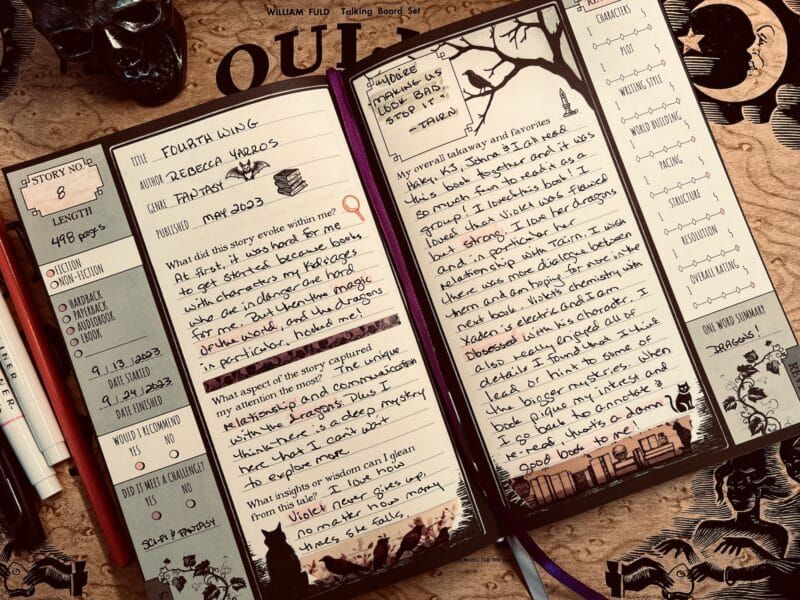 WILLIAM FULD Talking Board Set
OUIJ
STORY NO.
8
LENGTH
498 pages
FICTION
NON-FICTION
HARDBACK
PAPERBACK
AUDIOBOOK
EBOOK
9/13/2023
DATE STARTED
9/24/2023
DATE FINISHED
WOULD I RECOMMEND
YES NO
DID IT MEET A CHALLENGE?
YES NO
SCI-FI & FANTASY
TITLE FOURTH WING
AUTHOR REBECCA YARROS
GENRE FANTASY
PUBLISHED MAY 2023
What did this story evoke within me?
At first, it was hard for me
to get started because books
with characters my kid's ages
who are in danger are hard
for me. But then the magic
of the world, and the dragons
in particular, hooked me!
What aspect of the story captured
my attention the most? The unique
relationship and communication
with the dragons. Plus I
think there is a deep mystery
here that I can't wait
to explore more
What insights or wisdom can I glean
from this tale? I love how
Violet never gives up,
no matter how many
times she falls.
YOU'RE
MAKING US
LOOK BAD.
STOP IT.
-TAIRN
My overall takaway and favorites
& I all read
this book together and it was
so much fun to read it as a
group! I loved this book! I
loved that Violet was flawed
but strong. I love her dragons
and in particular her
relationship with Tairn. I wish
there was more dialogue between
them and am hoping for more in the
next book. Violet's chemistry with
Xaden is electric and I am
Obsessed with his character. I
also really enjoyed all of
details I found that I think
lead or hint to some of
the bigger mysteries. When
book pique my interest and
I go back to annotate &
re-read, that's a damn
good book to me!
CHARACTERS
1 5
PLOT
1 5
WRITING STYLE
1 5
WORLD BUILDING
1 5
PACING
1 5
STRUCTURE
1 5
RESOLUTION
1 5
OVERALL RATING
1 5
ONE WORD SUMMARY
DRAGONS!